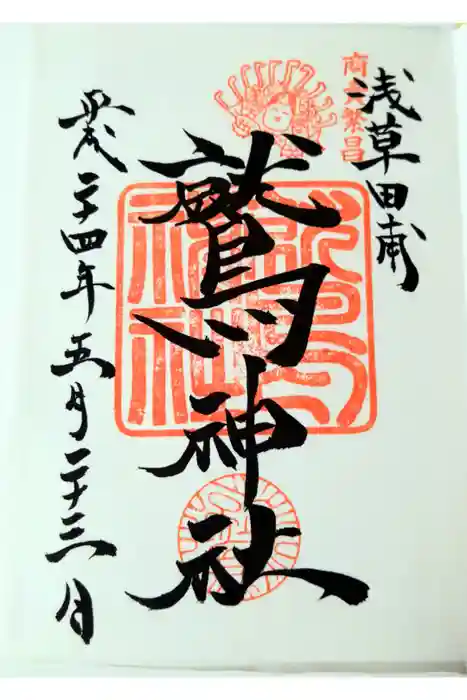 商売繁昌
浅草田甫
鷲神社
平成二十四年五月二十三日